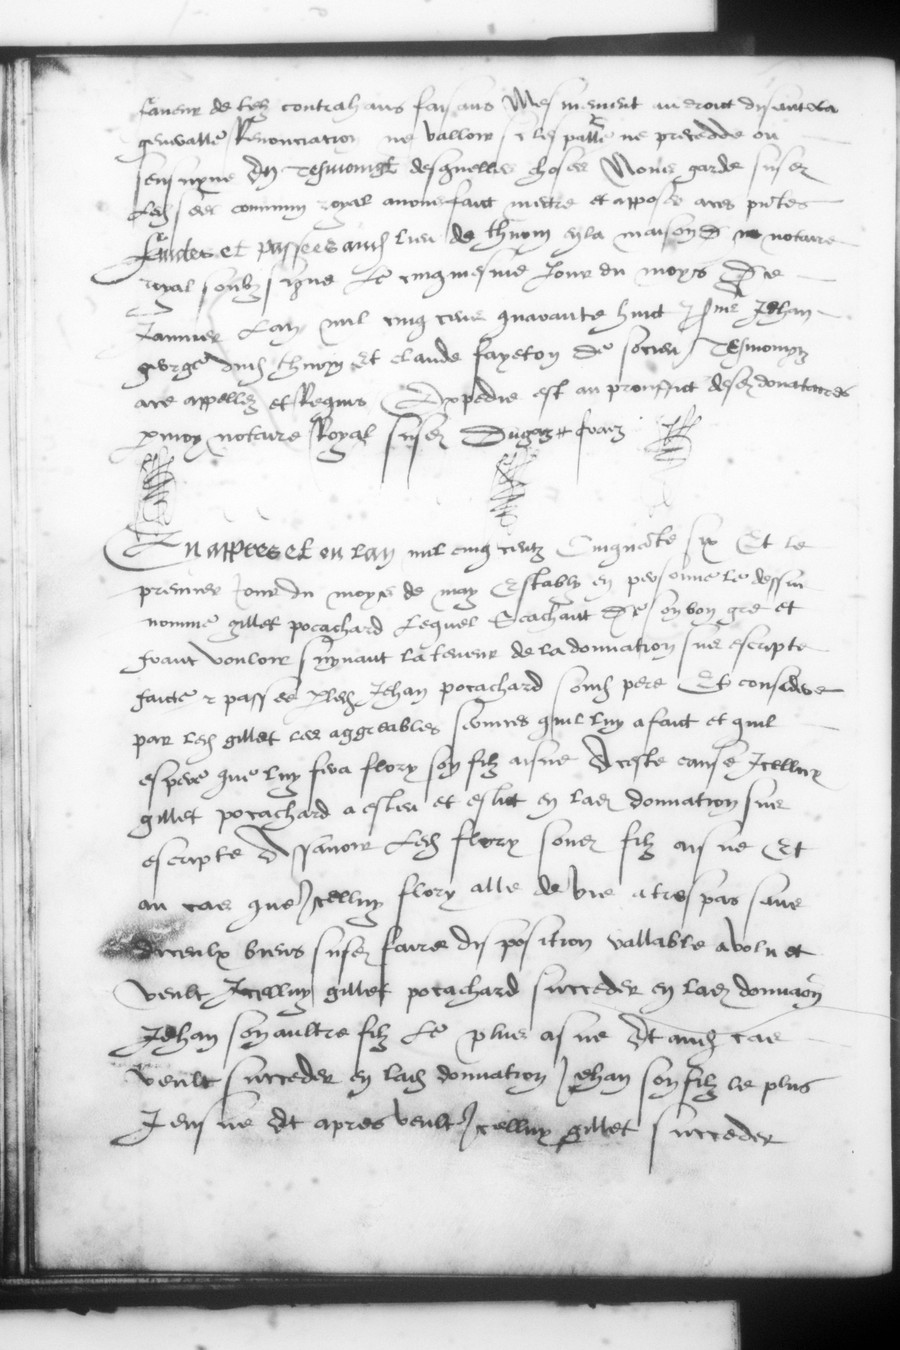 faveur de telz contrahans faisans Mesmement au droict disant la
generalle Renonciation ne valloir si lespalle ne precedde ou
sensuyve En tesmoingt desquelles choses Nous garde susd
led seel commun royal avons faict mectre et apposer a ces pntes
faictes et passees aud lieu de thuoy en la maison de notaire
royal soubz signe Le cinqiesme Jour du moys De
Janvier Lan mil cinq cens quarante huict psns Jehan
george dud thuoy Et claude fayeton de socieu Tesmoingz
a ce appellez et Requis Expedie est au prouffict desd donataires
p moy notaire Royal susd
En appres et ou lan mil cinq centz Cinquante six Et le
premier Jour du moys de may Establz en personne le dessus
nomme gillet pocachard Lequel Scachant De son bon gre et
franc vouloir suyvant la teneur de la donnation sus escripte
faicte & passee p led Jehan pocachard son d pere Et considere
par led gillet les aggreables services quil luy a faict et quil
espere que luy fera flory son filz aisne A ceste cause Icelluy
gillet pocachard a esleu et eslit en lad donnation sus
escripte Assavoir Led flory son d filz aisne Et
au cas que Icelluy flory alle de vie a trespas sans
diceulx biens susd faire disposition vallable a volu et
veult Icelluy gillet pocachard succeder en lad donnaon
Jehan son aultre filz Le plus aisne Et aud cas
veult succeder en lad donnation Jehan son filz le plus
Jeusne Et apres veult Icelluy gillet succeder